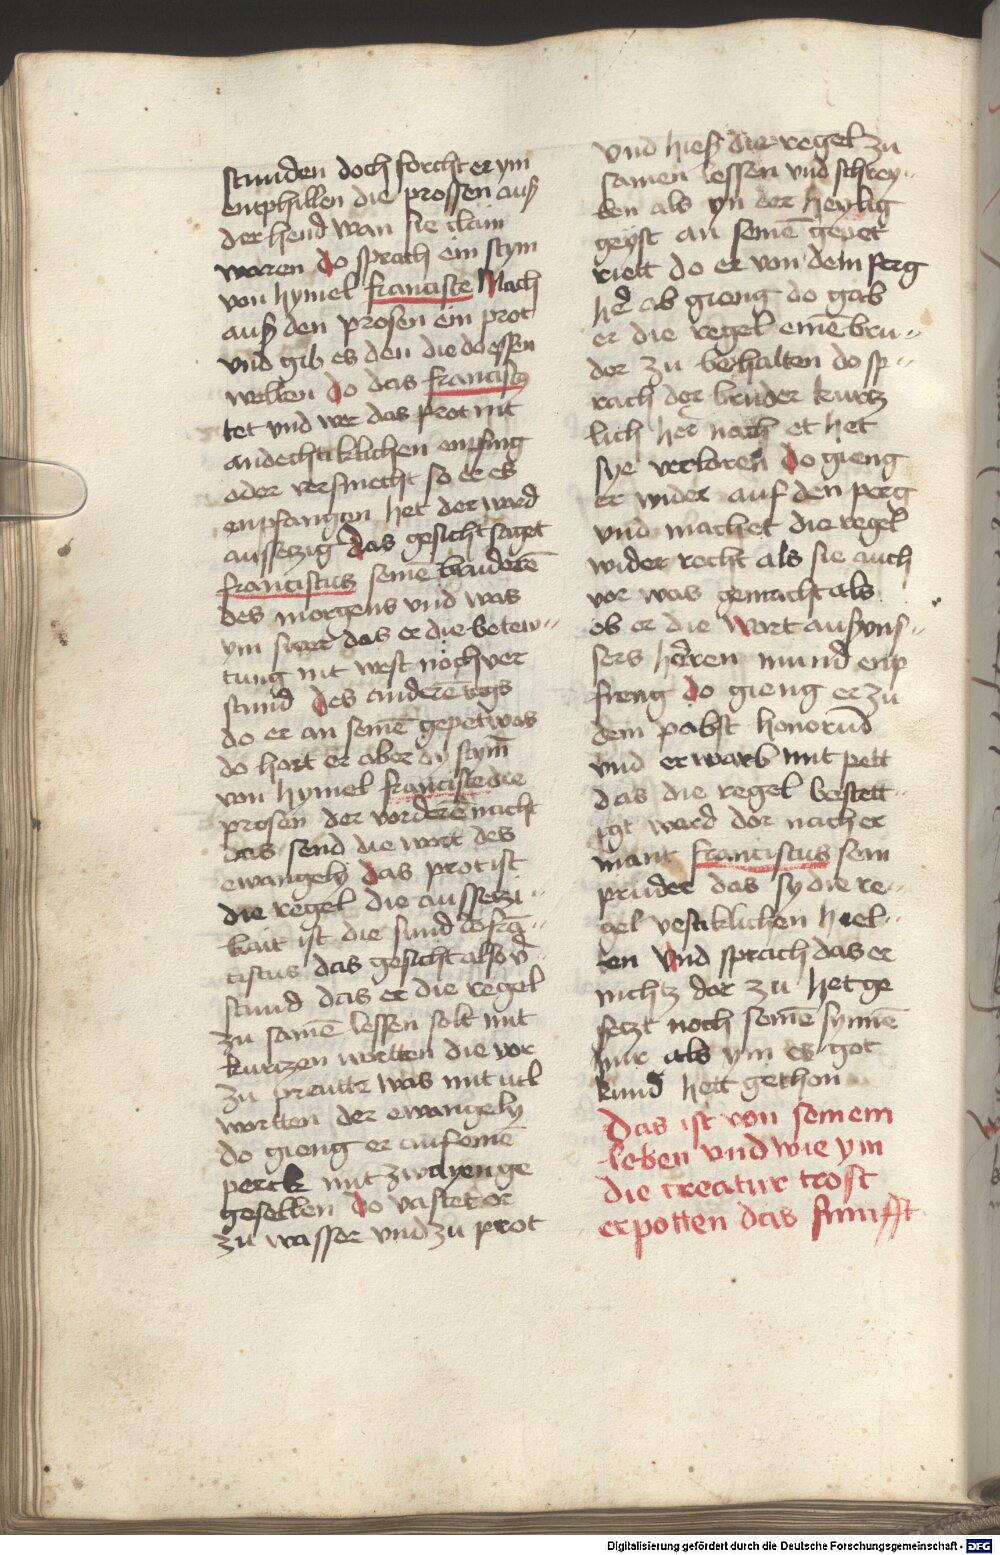 stunden doch forcht er ym
entphillen die prossen auß
der hend wan sie clain
waren do sprach ein stym
von hymel franciste Mach
auß den prosen ein prot
vnd gib es den die do essen
wellen do das franciscus
tet vnd wer das prot nit
andechtiklichen enpfing
oder versmecht so er es
enpfangen het der ward
aussetzig das gesicht saget
franciscus seinē bruderē
des morgens vnd was
ym swer das er die betew-
tung nit west noch ver
stund des anderē tags
do er an seinē gepet was
do hort er aber ain stym̄
von hymel franciste die
prosen der vorderē nacht
das send die wort des
ewangely das prot ist
die regel die aussetzi-
kait ist die sund do frā-
ciscus das gesicht also v̄-
stund das er die regel
zu samē lessen solt mit
kurczen wortten die vor
zu preutte was mit vil
wortten der ewangely
do gieng er auf einē
perck mit zwayen ge
gesellen do vastet er
zu wasser vnd zu prot
vnd hieß die regel zu
samen lessen vnd schrey-
ben als yn der heylig
geyst an seinē gepet
riett do er von dem perg
her ab gieng do gab
er die regel einē bru-
der zu behalten do sp-
rach der bruder kurtz
lich her noch er het
sye verloren do gieng
er wider auf den perg
vnd machet die regel
wider recht als sie auch
vor was gemacht als
ob er die wort auß vns-
sers herren mund enp
fieng do gieng er zu
dem pabst honoriud
vnd erwarb mit pett
das die regel bestett-
igt ward dor nach er
mant franciscus sein
pruder das sy die re-
gel vestiklichen hiel-
en Vnd sprach das er
nichtz dor zu het ge
setzt noch seinē synnē
nur als ym es got
kund hett gethon
das ist von seinem
leben vnd wie ym
die creatur trost
erpotten das funfft
Digitalisierung gefördert durch die Deutsche Forschungsgemeinschaft - DFG